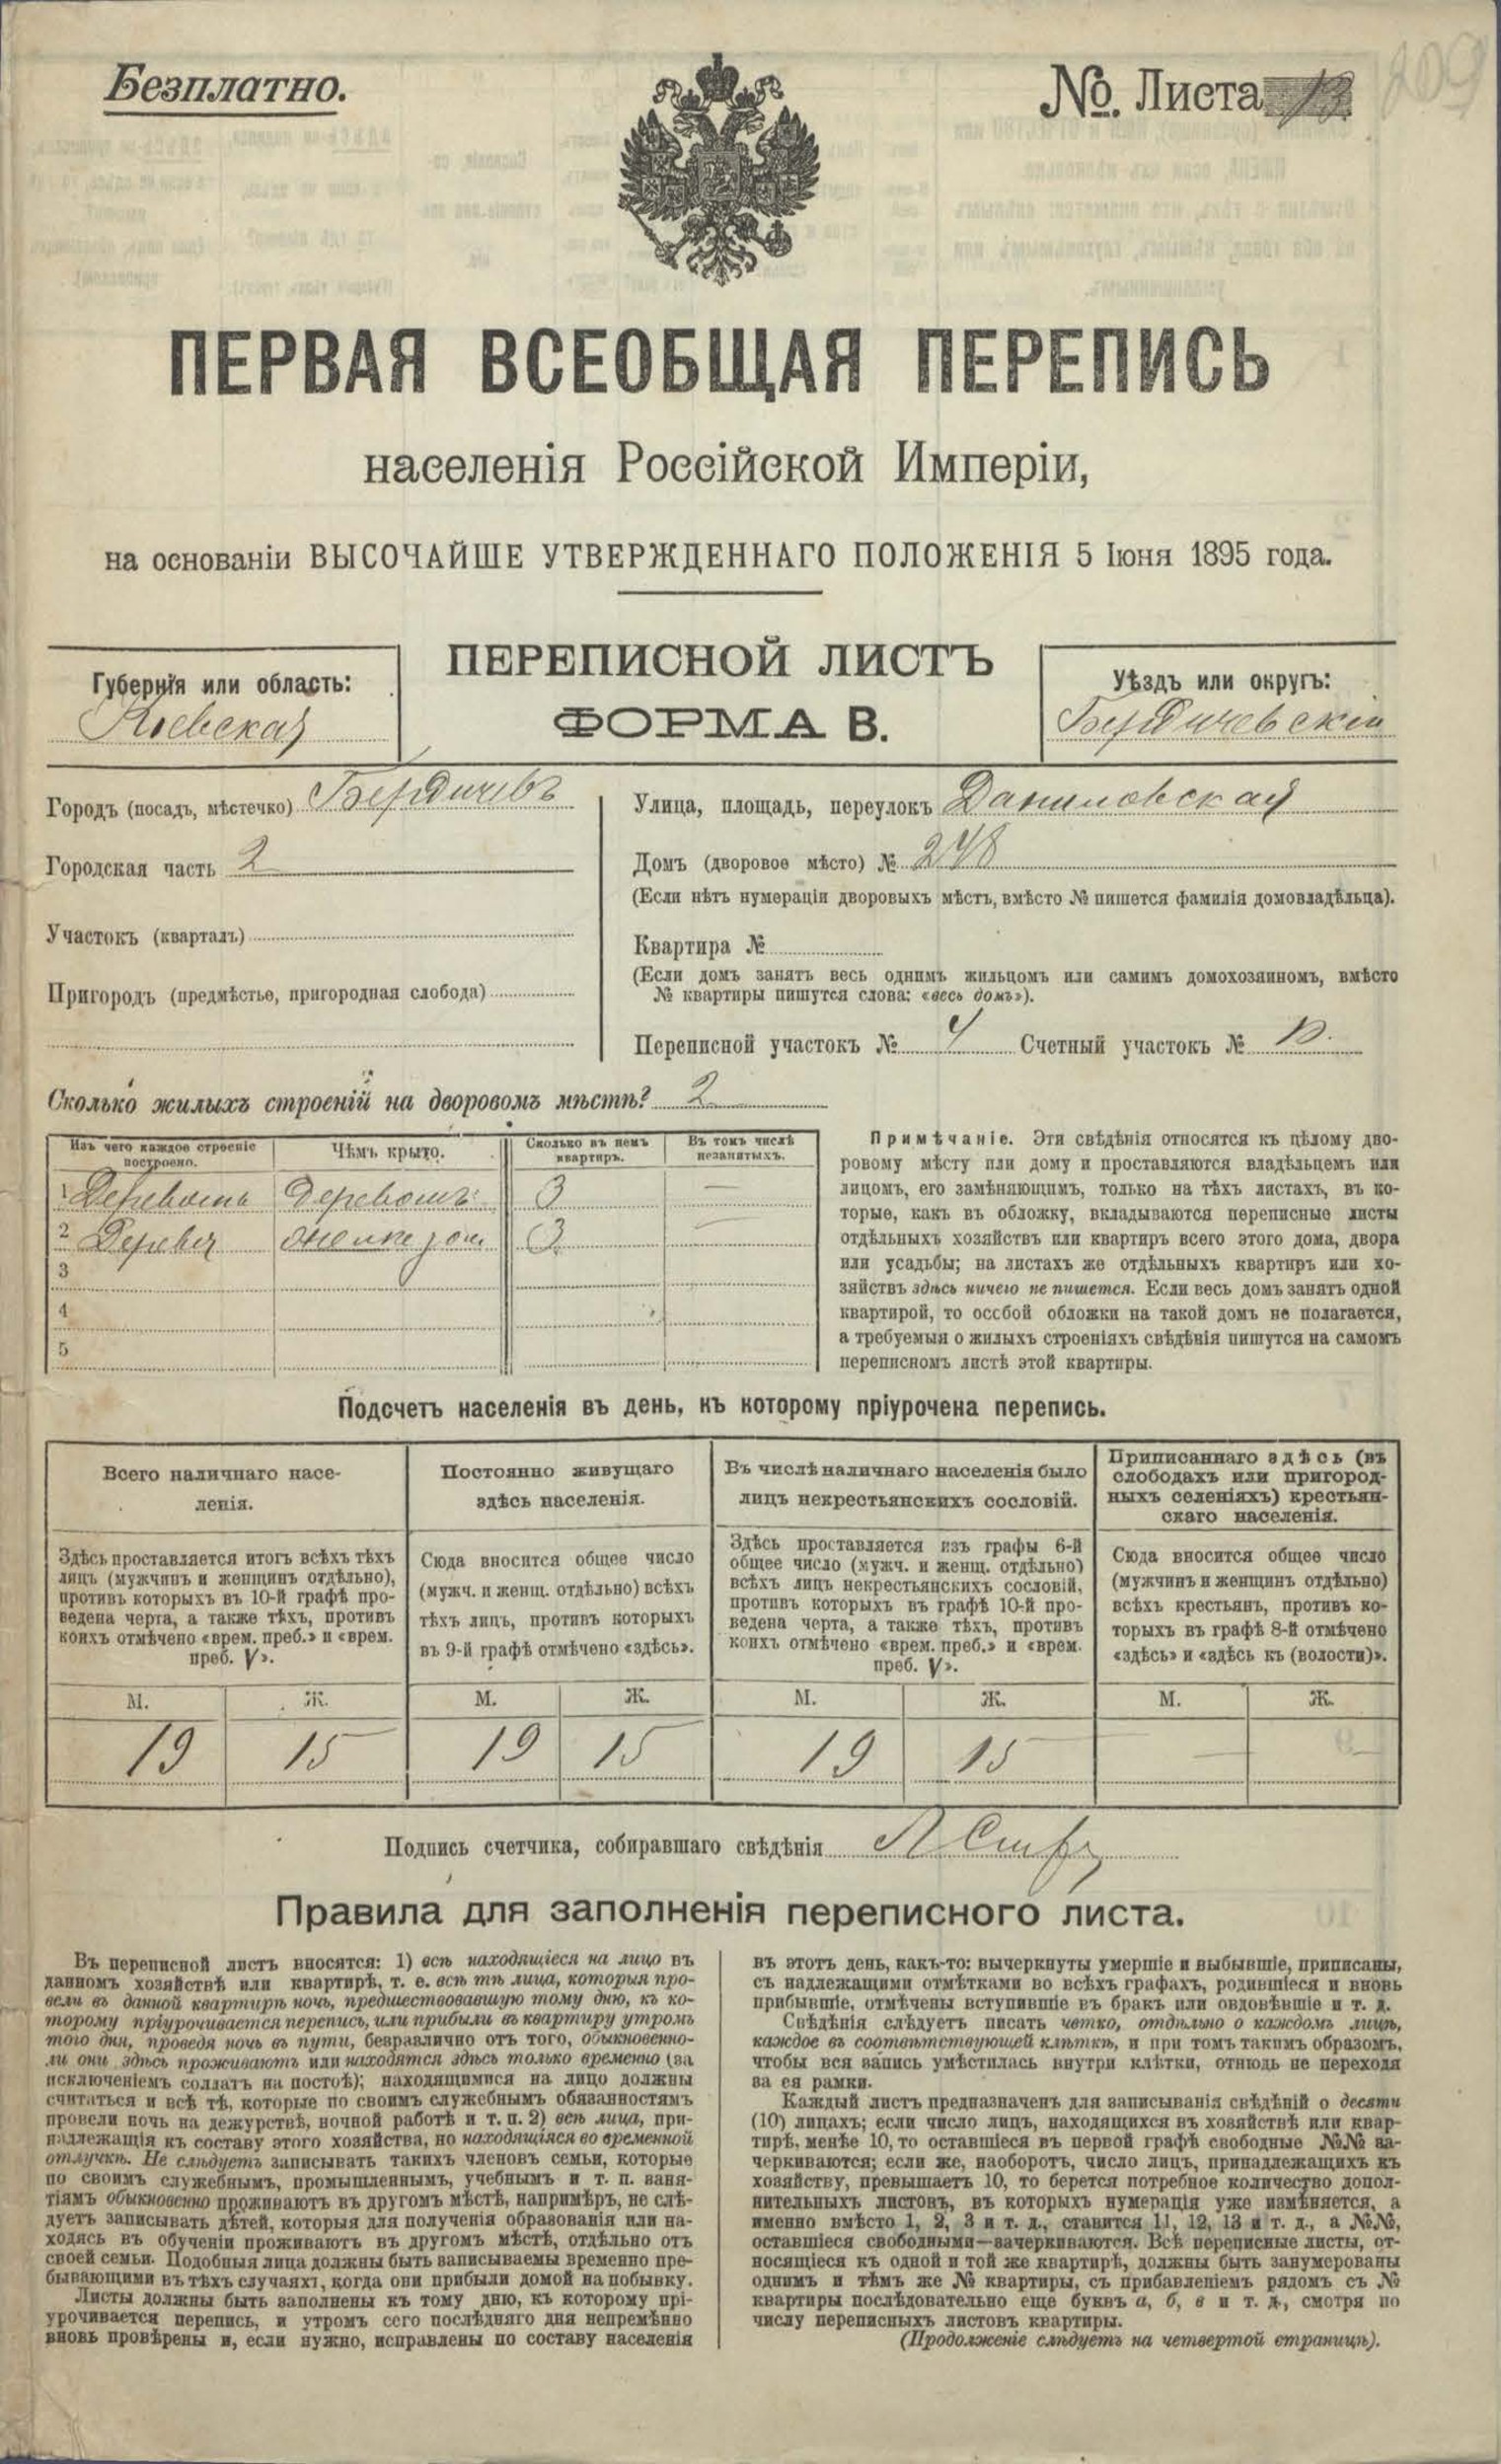 Безплатно.
№ Листа
209
ПЕРВАЯ ВСЕОБЩАЯ ПЕРЕПИСЬ
населенія Россійской Имперіи,
на основаніи ВЫСОЧАЙШЕ УТВЕРЖДЕННАГО ПОЛОЖЕНІЯ 5 Іюня 1895 года.
ПЕРЕПИСНОЙ ЛИСТЪ
ФОРМА В.
Губернія или область:
Кіевская
Уѣздъ или округъ:
Бердичевскій
Городъ (посадъ, мѣстечко) Бердичевъ
Городская часть 2
Участокъ (кварталъ)
Пригородъ (предмѣстье, пригородная слобода)
Улица, площадь, переулокъ Даниловская
Домъ (дворовое мѣсто) № 248
(Если нѣтъ нумераціи дворовыхъ мѣстъ, вмѣсто № пишется фамилія домовладѣльца).
Квартира №
(Если домъ занятъ весь однимъ жильцомъ или самимъ домохозяиномъ, вмѣсто
№ квартиры пишутся слова: «весь домъ»).
Переписной участокъ № 4 Счетный участокъ №
Сколько жилыхъ строеній на дворовомъ мѣстѣ? 2
Изъ чего каждое строеніе
построено.
Чѣмъ крыто.
Сколько въ немъ
квартиръ.
Въ томъ числѣ
незанятыхъ.
1 Деревомъ Деревомъ 3 —
2 Дерева 3 —
3
4
5
Примѣчаніе. Эти свѣдѣнія относятся къ цѣлому дво-
ровому мѣсту или дому и проставляются владѣльцемъ или
лицомъ, его замѣняющимъ, только на тѣхъ листахъ, въ ко-
торые, какъ въ обложку, вкладываются переписные листы
отдѣльныхъ хозяйствъ или квартиръ всего этого дома, двора
или усадьбы; на листахъ же отдѣльныхъ квартиръ или хо-
зяйствъ здѣсь ничего не пишется. Если весь домъ занятъ одной
квартирой, то особой обложки на такой домъ не полагается,
а требуемыя о жилыхъ строеніяхъ свѣдѣнія пишутся на самомъ
переписномъ листѣ этой квартиры.
Подсчетъ населенія въ день, къ которому пріурочена перепись.
Всего наличнаго насе-
ленія.
Постоянно живущаго
здѣсь населенія.
Въ числѣ наличнаго населенія было
лицъ некрестьянскихъ сословій.
Приписаннаго здѣсь (въ
слободахъ или пригород-
ныхъ селеніяхъ) крестьян-
скаго населенія.
Здѣсь проставляется итогъ всѣхъ тѣхъ
лицъ (мужчинъ и женщинъ отдѣльно),
противъ которыхъ въ 10-й графѣ про-
ведена черта, а также тѣхъ, противъ
коихъ отмѣчено «врем. преб.» и «врем.
преб. V».
Сюда вносится общее число
(мужч. и женщ. отдѣльно) всѣхъ
тѣхъ лицъ, противъ которыхъ
въ 9-й графѣ отмѣчено «здѣсь».
Здѣсь проставляется изъ графы 6-й
общее число (мужч. и женщ. отдѣльно)
всѣхъ лицъ некрестьянскихъ сословій,
противъ которыхъ въ графѣ 10-й про-
ведена черта, а также тѣхъ, противъ
коихъ отмѣчено «врем. преб.» и «врем.
преб. V».
Сюда вносится общее число
(мужчинъ и женщинъ отдѣльно)
всѣхъ крестьянъ, противъ ко-
торыхъ въ графѣ 8-й отмѣчено
«здѣсь» и «здѣсь къ (волости)».
М. Ж. М. Ж. М. Ж. М. Ж.
19 15 19 15 19 15 — —
Подпись счетчика, собиравшаго свѣдѣнія
Правила для заполненія переписного листа.
Въ переписной листъ вносятся: 1) всѣ находящіеся на лицо въ
данномъ хозяйствѣ или квартирѣ, т. е. всѣ тѣ лица, которыя про-
вели въ данной квартирѣ ночь, предшествовавшую тому дню, къ ко-
торому пріурочивается перепись, или прибыли въ квартиру утромъ
того дня, проведя ночь въ пути, безразлично отъ того, обыкновенно-
ли они здѣсь проживаютъ или находятся здѣсь только временно (за
исключеніемъ солдатъ на постоѣ); находящимися на лицо должны
считаться и всѣ тѣ, которые по своимъ служебнымъ обязанностямъ
провели ночь на дежурствѣ, ночной работѣ и т. п. 2) всѣ лица, при-
надлежащія къ составу этого хозяйства, но находящіяся во временной
отлучкѣ. Не слѣдуетъ записывать такихъ членовъ семьи, которые
по своимъ служебнымъ, промышленнымъ, учебнымъ и т. п. заня-
тіямъ обыкновенно проживаютъ въ другомъ мѣстѣ, напримѣръ, не слѣ-
дуетъ записывать дѣтей, которыя для полученія образованія или на-
ходясь въ обученіи проживаютъ въ другомъ мѣстѣ, отдѣльно отъ
своей семьи. Подобныя лица должны быть записываемы временно пре-
бывающими въ тѣхъ случаяхъ, когда они прибыли домой на побывку.
Листы должны быть заполнены къ тому дню, къ которому прі-
урочивается перепись, и утромъ сего послѣдняго дня непремѣнно
вновь провѣрены и, если нужно, исправлены по составу населенія
въ этотъ день, какъ-то: вычеркнуты умершіе и выбывшіе, приписаны,
съ надлежащими отмѣтками во всѣхъ графахъ, родившіеся и вновь
прибывшіе, отмѣчены вступившіе въ бракъ или овдовѣвшіе и т. д.
Свѣдѣнія слѣдуетъ писать четко, отдѣльно о каждомъ лицѣ,
каждое въ соотвѣтствующей клѣткѣ, и при томъ такимъ образомъ,
чтобы вся запись умѣстилась внутри клѣтки, отнюдь не переходя
за ея рамки.
Каждый листъ предназначенъ для записыванія свѣдѣній о десяти
(10) лицахъ; если число лицъ, находящихся въ хозяйствѣ или квар-
тирѣ, менѣе 10, то оставшіеся въ первой графѣ свободные №№ за-
черкиваются; если же, наоборотъ, число лицъ, принадлежащихъ къ
хозяйству, превышаетъ 10, то берется потребное количество допол-
нительныхъ листовъ, въ которыхъ нумерація уже измѣняется, а
именно вмѣсто 1, 2, 3 и т. д., ставится 11, 12, 13 и т. д., а №№,
оставшіеся свободными—зачеркиваются. Всѣ переписные листы, от-
носящіеся къ одной и той же квартирѣ, должны быть занумерованы
однимъ и тѣмъ же № квартиры, съ прибавленіемъ рядомъ съ №
квартиры послѣдовательно еще буквъ а, б, в и т. д., смотря по
числу переписныхъ листовъ квартиры.
(Продолженіе слѣдуетъ на четвертой страницѣ).